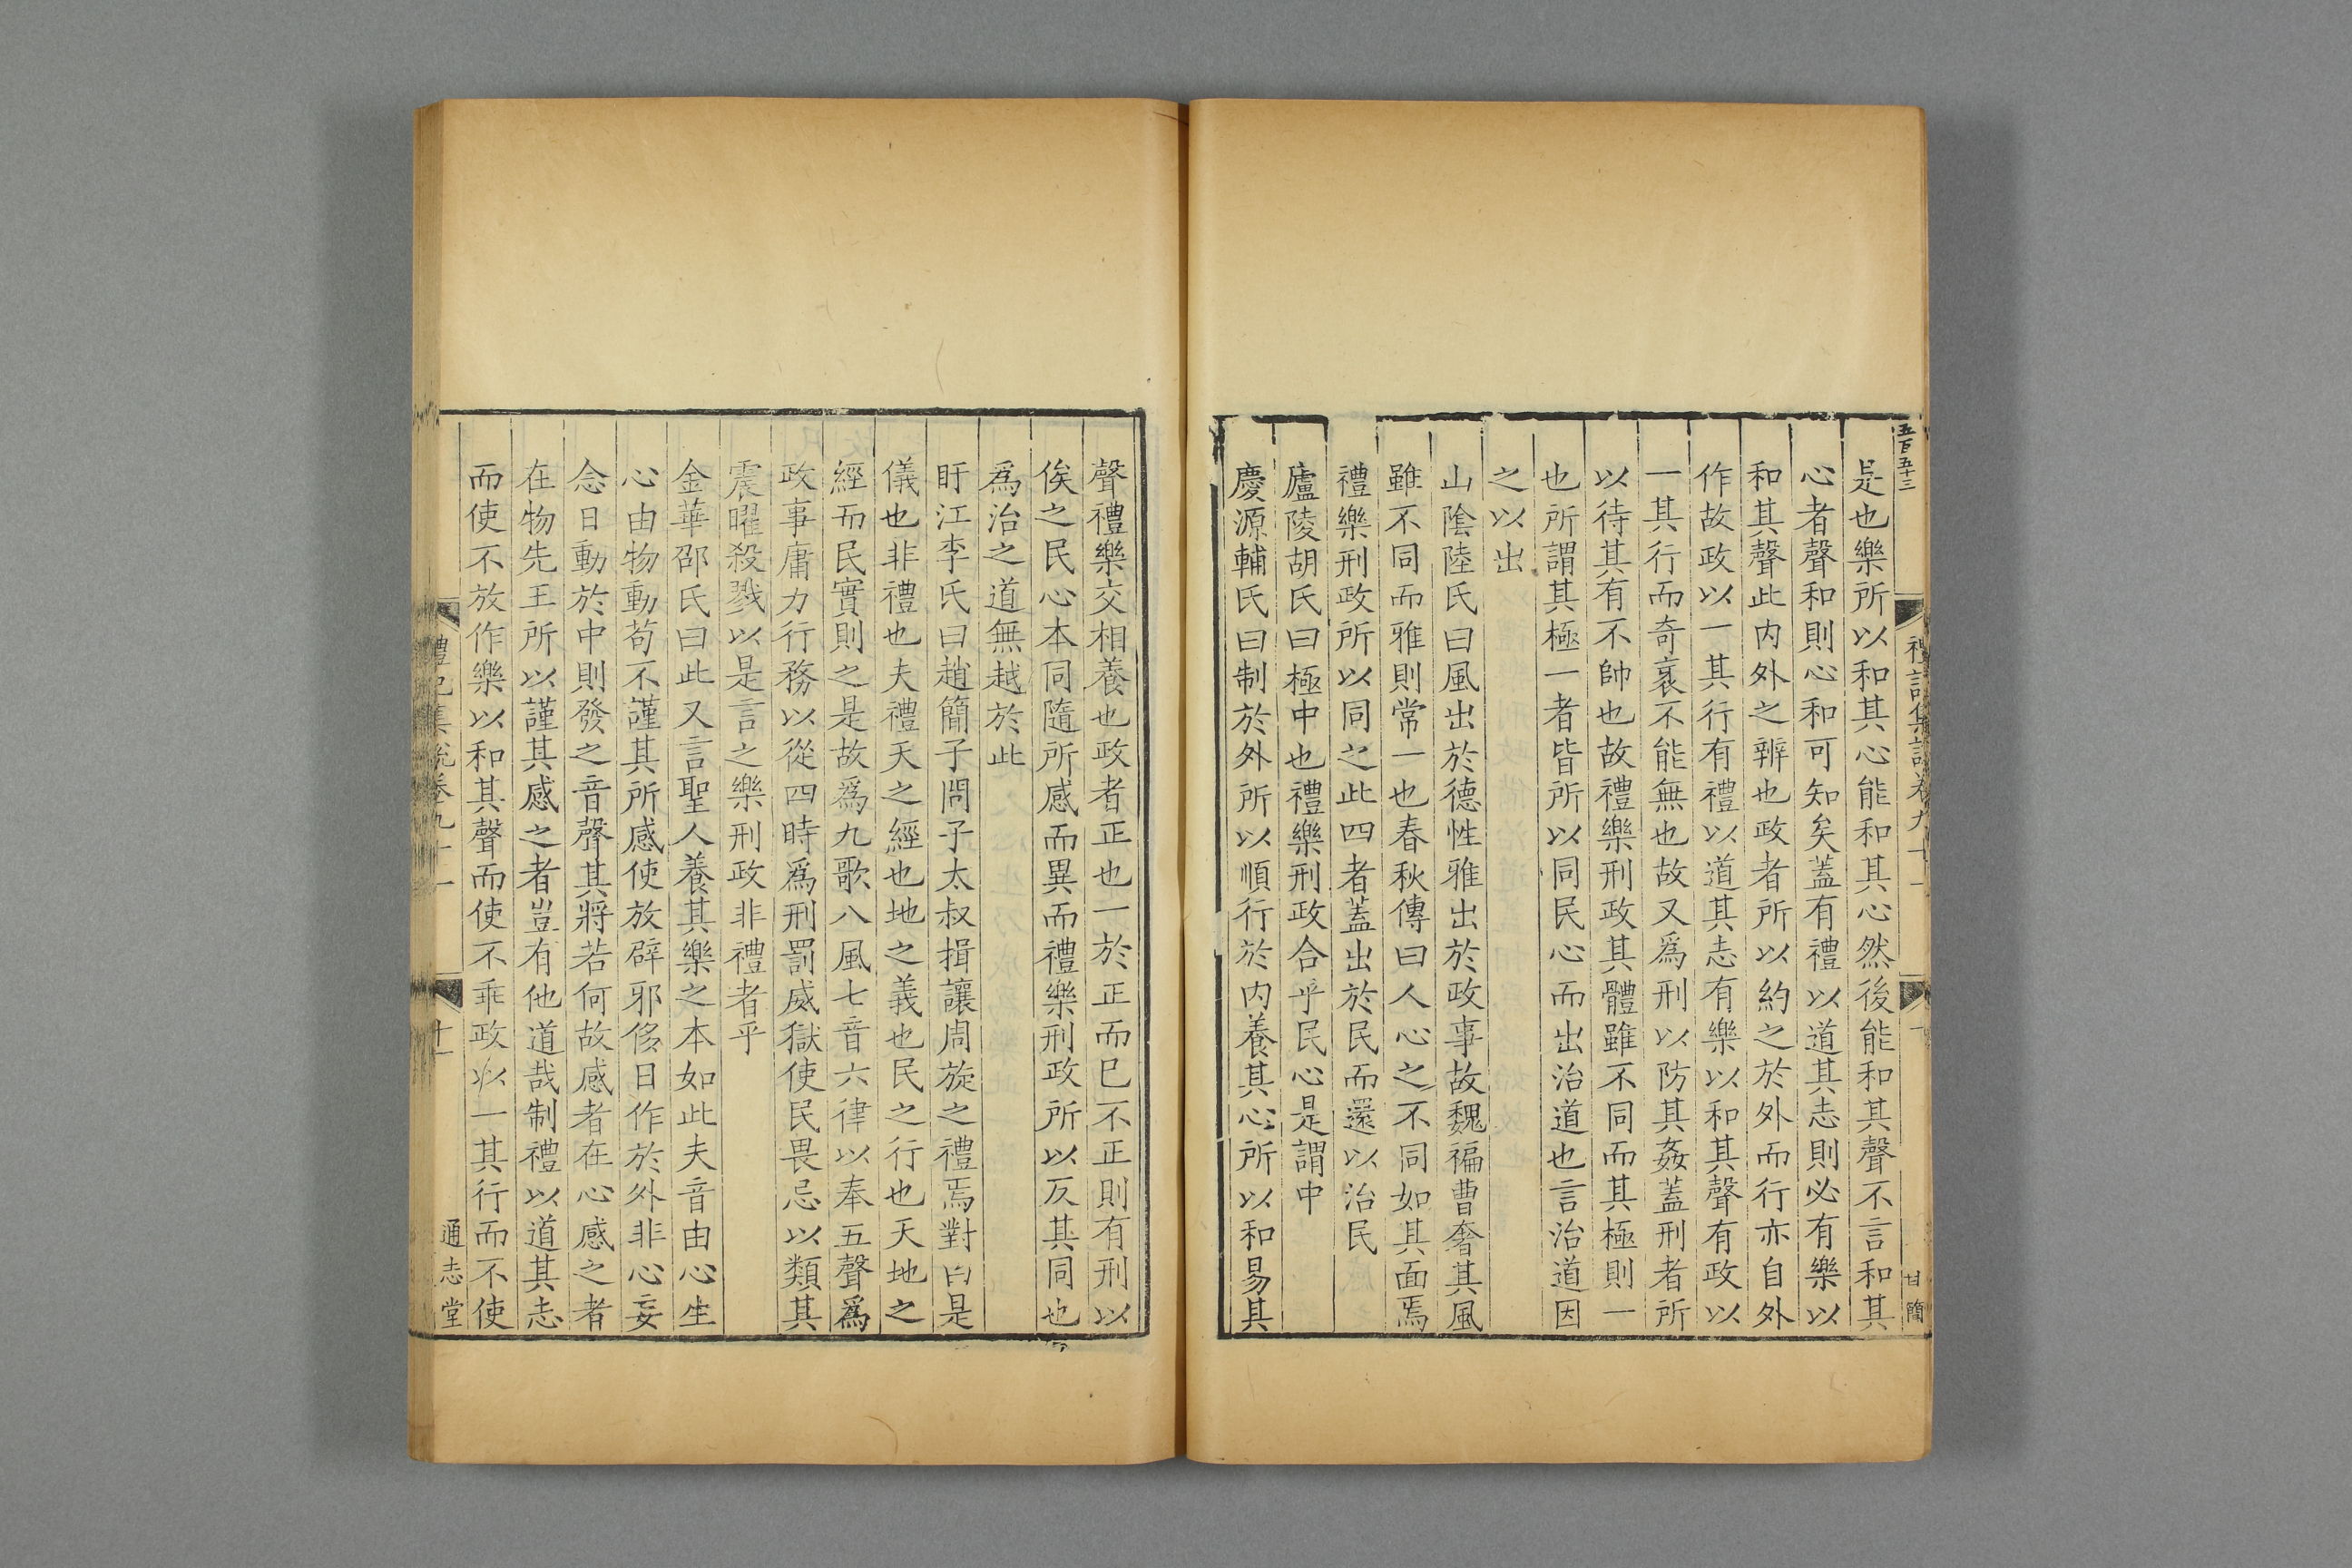 五百五十三
禮記集說卷九十一
甘簡
是也樂所以和其心能和其心然後能和其聲不言和其
心者聲和則心和可知矣蓋有禮以道其志則必有樂以
和其聲此内外之辨也政者所以約之於外而行亦自外
作故政以一其行有禮以道其志有樂以和其聲有政以
一其行而奇衺不能無也故又爲刑以防其姦蓋刑者所
以待其有不帥也故禮樂刑政其體雖不同而其極則一
也所謂其極一者皆所以同民心而出治道也言治道因
之以出
山陰陸氏曰風出於德性雅出於政事故魏褊曹奢其風
雖不同而雅則常一也春秋傳曰人心之不同如其面焉
禮樂刑政所以同之此四者蓋出於民而還以治民
廬陵胡氏曰極中也禮樂刑政合乎民心是謂中
慶源輔氏曰制於外所以順行於内養其心所以和易其
聲禮樂交相養也政者正也一於正而已不正則有刑以
俟之民心本同隨所感而異而禮樂刑政所以反其同也
爲治之道無越於此
盱江李氏曰趙簡子問子太叔揖讓周旋之禮焉對曰是
儀也非禮也夫禮天之經也地之義也民之行也天地之
經而民實則之是故爲九歌八風七音六律以奉五聲爲
政事庸力行務以從四時爲刑罰威獄使民畏忌以類其
震曜殺戮以是言之樂刑政非禮者乎
金華邵氏曰此又言聖人養其樂之本如此夫音由心生
心由物動苟不謹其所感使放辟邪侈日作於外非心妄
念日動於中則發之音聲其將若何故感者在心感之者
在物先王所以謹其感之者豈有他道哉制禮以道其志
而使不放作樂以和其聲而使不乖政以一其行而不使
禮記集說卷九十一
十一
通志堂